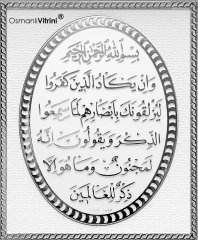 OsmanlıVitrini®
بسم الله الرحمن الرحيم
وَإِنْ يَكَادُ الَّذِينَ كَفَرُوا
لَيُزْلِقُونَكَ بِأَبْصَارِهِمْ لَمَّا سَمِعُوا
الذِّكْرَ وَيَقُولُونَ إِنَّهُ
لَمَجْنُونٌ وَمَا هُوَ إِلَّا
ذِكْرٌ لِلْعَالَمِينَ